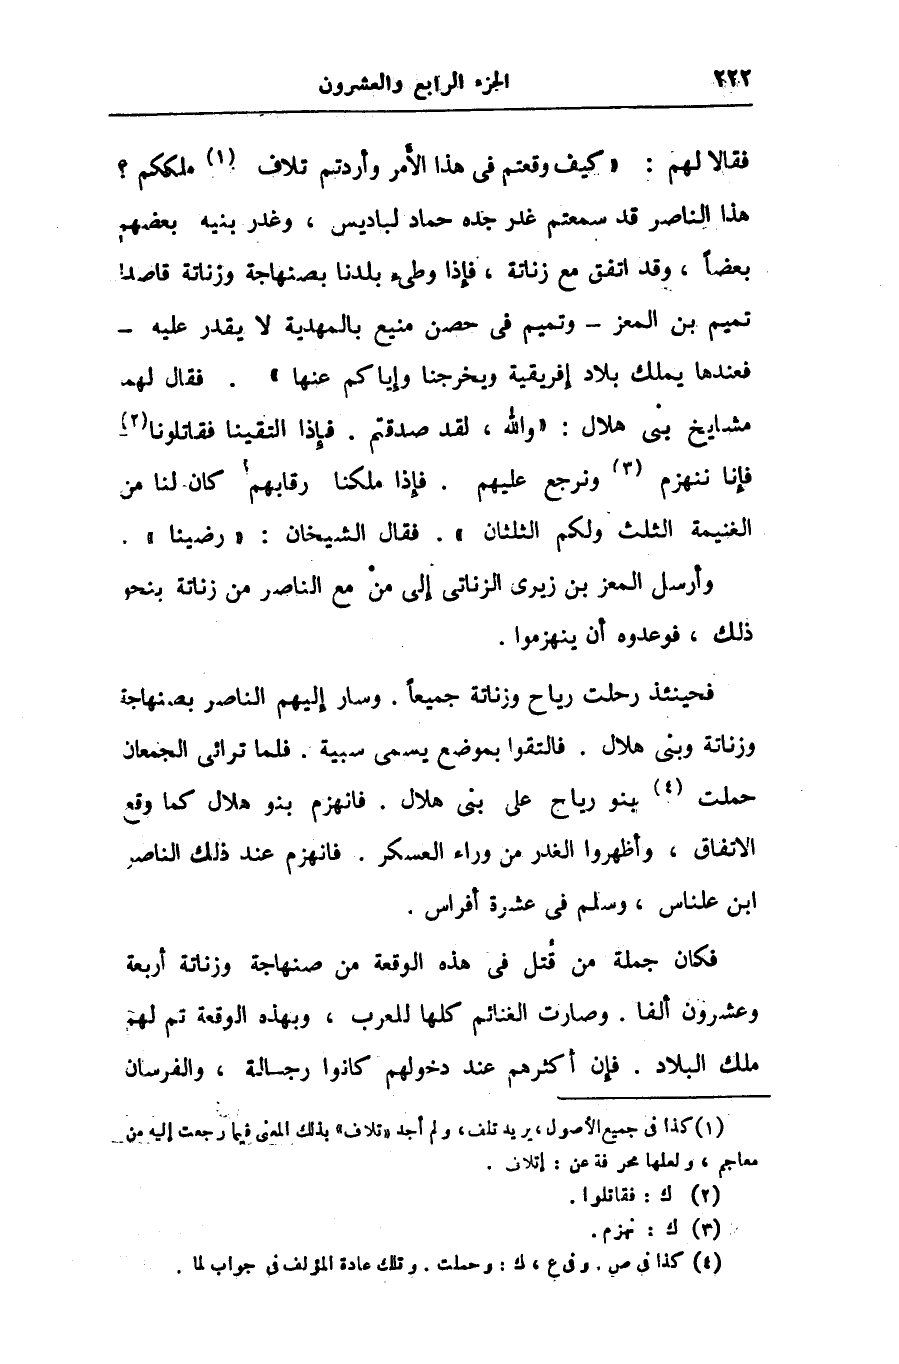 ٢٢٢ الجزء الرابع والعشرون
فقالا لهم : « كيف وقعتم فى هذا الأمر وأردتم تلاف (١) ملككم ؟
هذا الناصر قد سمعتم غدر جده حماد لباديس ، وغدر بنيه بعضهم
بعضاً ، وقد اتفق مع زناتة ، فإذا وطىء بلدنا بصنهاجة وزناتة قاصدا
تميم بن المعز – وتميم فى حصن منيع بالمهدية لا يقدر عليه –
فعندها يملك بلاد إفريقية ويخرجنا وإياكم عنها » . فقال لهم
مشايخ بنى هلال : «والله ، لقد صدقتم . فإذا التقينا فقاتلونا(٢)
فإنا ننهزم (٣) ونرجع عليهم . فإذا ملكنا رقابهم كان لنا من
الغنيمة الثلث ولكم الثلثان » . فقال الشيخان : « رضينا » .
وأرسل المعز بن زيرى الزناتى إلى منْ مع الناصر من زناتة بنحو
ذلك ، فوعدوه أن ينهزموا .
فحينئذ رحلت رياح وزناتة جميعاً . وسار إليهم الناصر بصنهاجة
وزناتة وبنى هلال . فالتقوا بموضع يسمى سبية . فلما ترائى الجمعان
حملت (٤) بنو رياح على بنى هلال . فانهزم بنو هلال كما وقع
الاتفاق ، وأظهروا الغدر من وراء العسكر . فانهزم عند ذلك الناصر
ابن علناس ، وسلم فى عشرة أفراس .
فكان جملة من قُتل فى هذه الوقعة من صنهاجة وزناتة أربعة
وعشرون ألفا . وصارت الغنائم كلها للعرب ، وبهذه الوقعة تم لهم
ملك البلاد . فإن أكثرهم عند دخولهم كانوا رجالة ، والفرسان
(١) كذا فى جميع الأصول ، يريد تلف ، ولم أجد «تلاف» بذلك المعنى فيما رجعت إليه من
معاجم ، ولعلها محرفة عن : إتلاف .
(٢) ك : فقاتلوا .
(٣) ك : نهزم .
(٤) كذا فى ص . وفى ع ، ك : وحملت . وتلك عادة المؤلف فى جواب لما .